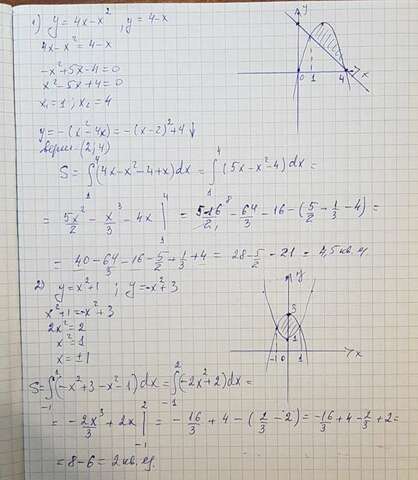 1) y = 4x - x², y = 4 - x
4x - x² = 4 - x
-x² + 5x - 4 = 0
x² - 5x + 4 = 0
x₁ = 1, x₂ = 4
A y
0 1 4 x
y = -(x² - 4x) = -(x - 2)² + 4 ↓
верш - (2; 4)
S = ∫₁⁴ (4x - x² - 4 + x) dx = ∫₁⁴ (5x - x² - 4) dx =
= 5x²/2 - x³/3 - 4x |₁⁴ = 5·16⁸/2₁ - 64/3 - 16 - (5/2 - 1/3 - 4) =
= 40 - 64/3 - 16 - 5/2 + 1/3 + 4 = 28 - 5/2 - 21 = 4,5 кв. ед.
2) y = x² + 1 ; y = -x² + 3
x² + 1 = -x² + 3
2x² = 2
x² = 1
x = ±1
y
3
1
-1 0 1 x
S = ∫₋₁² (-x² + 3 - x² - 1) dx = ∫₋₁² (-2x² + 2) dx =
= -2x³/3 + 2x |₋₁² = -16/3 + 4 - (2/3 - 2) = -16/3 + 4 - 2/3 + 2 =
= 8 - 6 = 2 кв. ед.